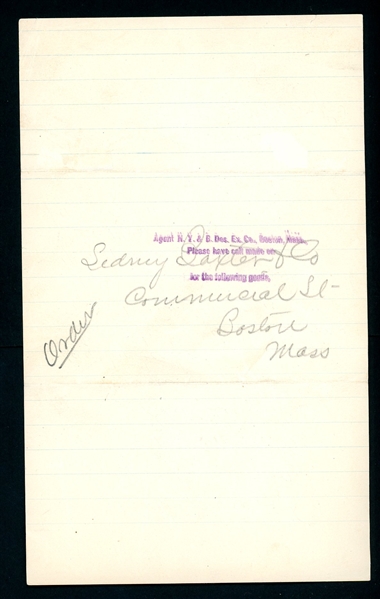 Agent N. Y. & B. Des. Ex. Co., Boston, Mass.
Please have call made on
Sidney & Co
for the following goods.
Commercial St-
Boston
Mass
Order